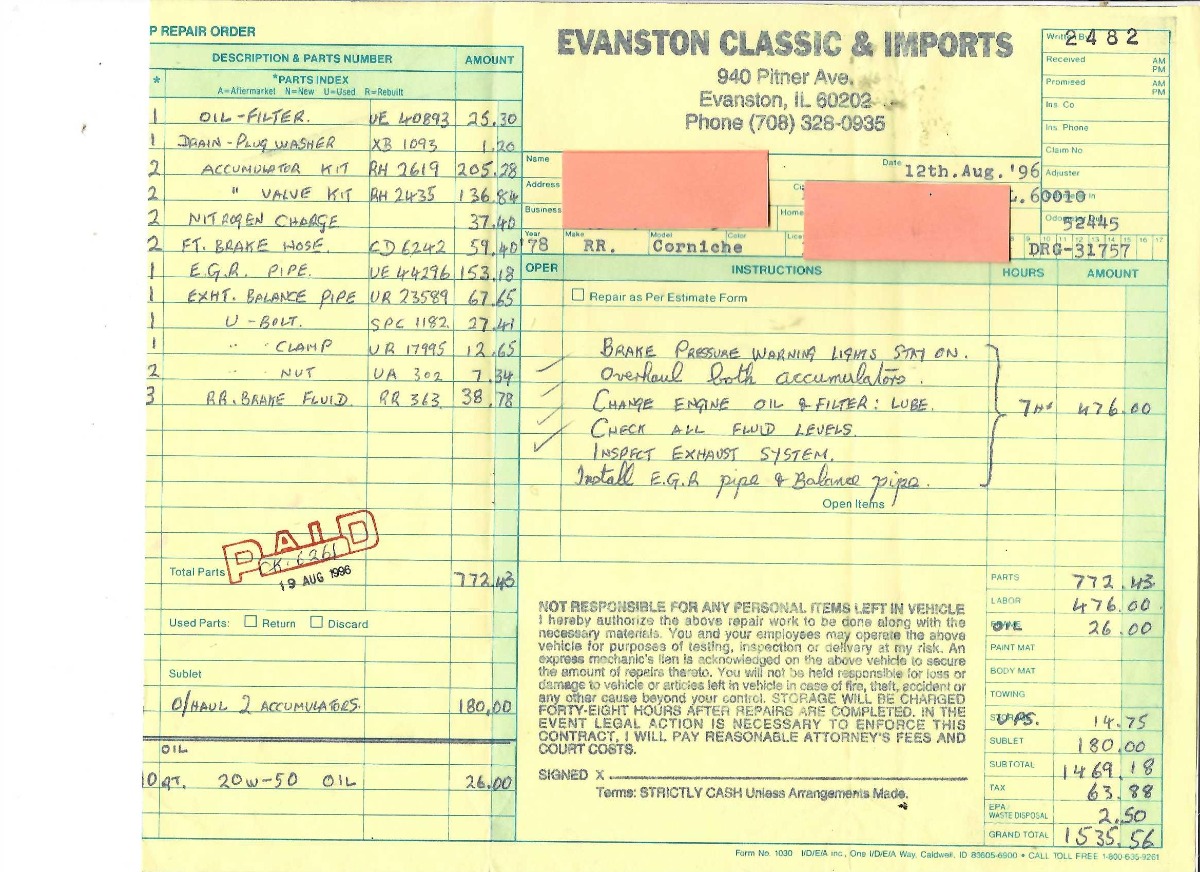 P REPAIR ORDER
DESCRIPTION & PARTS NUMBER AMOUNT
* *PARTS INDEX
A=Aftermarket N=New U=Used R=Rebuilt
1 OIL-FILTER. UE 40893 25.30
1 DRAIN-PLUG WASHER XB 1093 1.20
2 ACCUMULATOR KIT RH 2619 205.28
2 " VALVE KIT RH 2435 136.84
2 NITROGEN CHARGE 37.40
2 FT. BRAKE HOSE. CD 6242 59.40
1 E.G.R. PIPE. UE 44296 153.18
1 EXHT. BALANCE PIPE UR 23589 67.65
1 U-BOLT. SPC 1182 27.41
1 " " CLAMP UR 17995 12.65
2 " " NUT UA 302 7.34
3 RR. BRAKE FLUID. RR 363 38.78
PAID
CK. 6261
19 AUG 1996
Total Parts 772.43
Used Parts: Return Discard
Sublet
O/HAUL 2 ACCUMULATORS. 180.00
OIL
10 QT. 20W-50 OIL 26.00
EVANSTON CLASSIC & IMPORTS
940 Pitner Ave.
Evanston, IL 60202
Phone (708) 328-0935
Written By 2482
Received AM PM
Promised AM PM
Ins. Co
Ins. Phone
Claim No
Adjuster
Name Date 12th.Aug.'96
Address 60010
Business Home 52445
Year Make Model Color
'78 RR. Corniche DRG-31757
OPER INSTRUCTIONS HOURS AMOUNT
Repair as Per Estimate Form
BRAKE PRESSURE WARNING LIGHTS STAY ON.
Overhaul both accumulators.
CHANGE ENGINE OIL & FILTER: LUBE. 7 Hs 476.00
CHECK ALL FLUID LEVELS.
INSPECT EXHAUST SYSTEM.
Install E.G.R pipe & Balance pipe.
Open Items
NOT RESPONSIBLE FOR ANY PERSONAL ITEMS LEFT IN VEHICLE
I hereby authorize the above repair work to be done along with the
necessary materials. You and your employees may operate the above
vehicle for purposes of testing, inspection or delivery at my risk. An
express mechanic's lien is acknowledged on the above vehicle to secure
the amount of repairs thereto. You will not be held responsible for loss or
damage to vehicle or articles left in vehicle in case of fire, theft, accident or
any other cause beyond your control. STORAGE WILL BE CHARGED
FORTY-EIGHT HOURS AFTER REPAIRS ARE COMPLETED. IN THE
EVENT LEGAL ACTION IS NECESSARY TO ENFORCE THIS
CONTRACT, I WILL PAY REASONABLE ATTORNEY'S FEES AND
COURT COSTS.
SIGNED X
Terms: STRICTLY CASH Unless Arrangements Made.
PARTS 772.43
LABOR 476.00
OIL 26.00
PAINT MAT
BODY MAT
TOWING
UPS. 14.75
SUBLET 180.00
SUBTOTAL 1469.18
TAX 63.88
EPA WASTE DISPOSAL 2.50
GRAND TOTAL 1535.56
Form No. 1030 I/D/E/A inc., One I/D/E/A Way, Caldwell, ID 83605-6900 • CALL TOLL FREE 1-800-635-9261